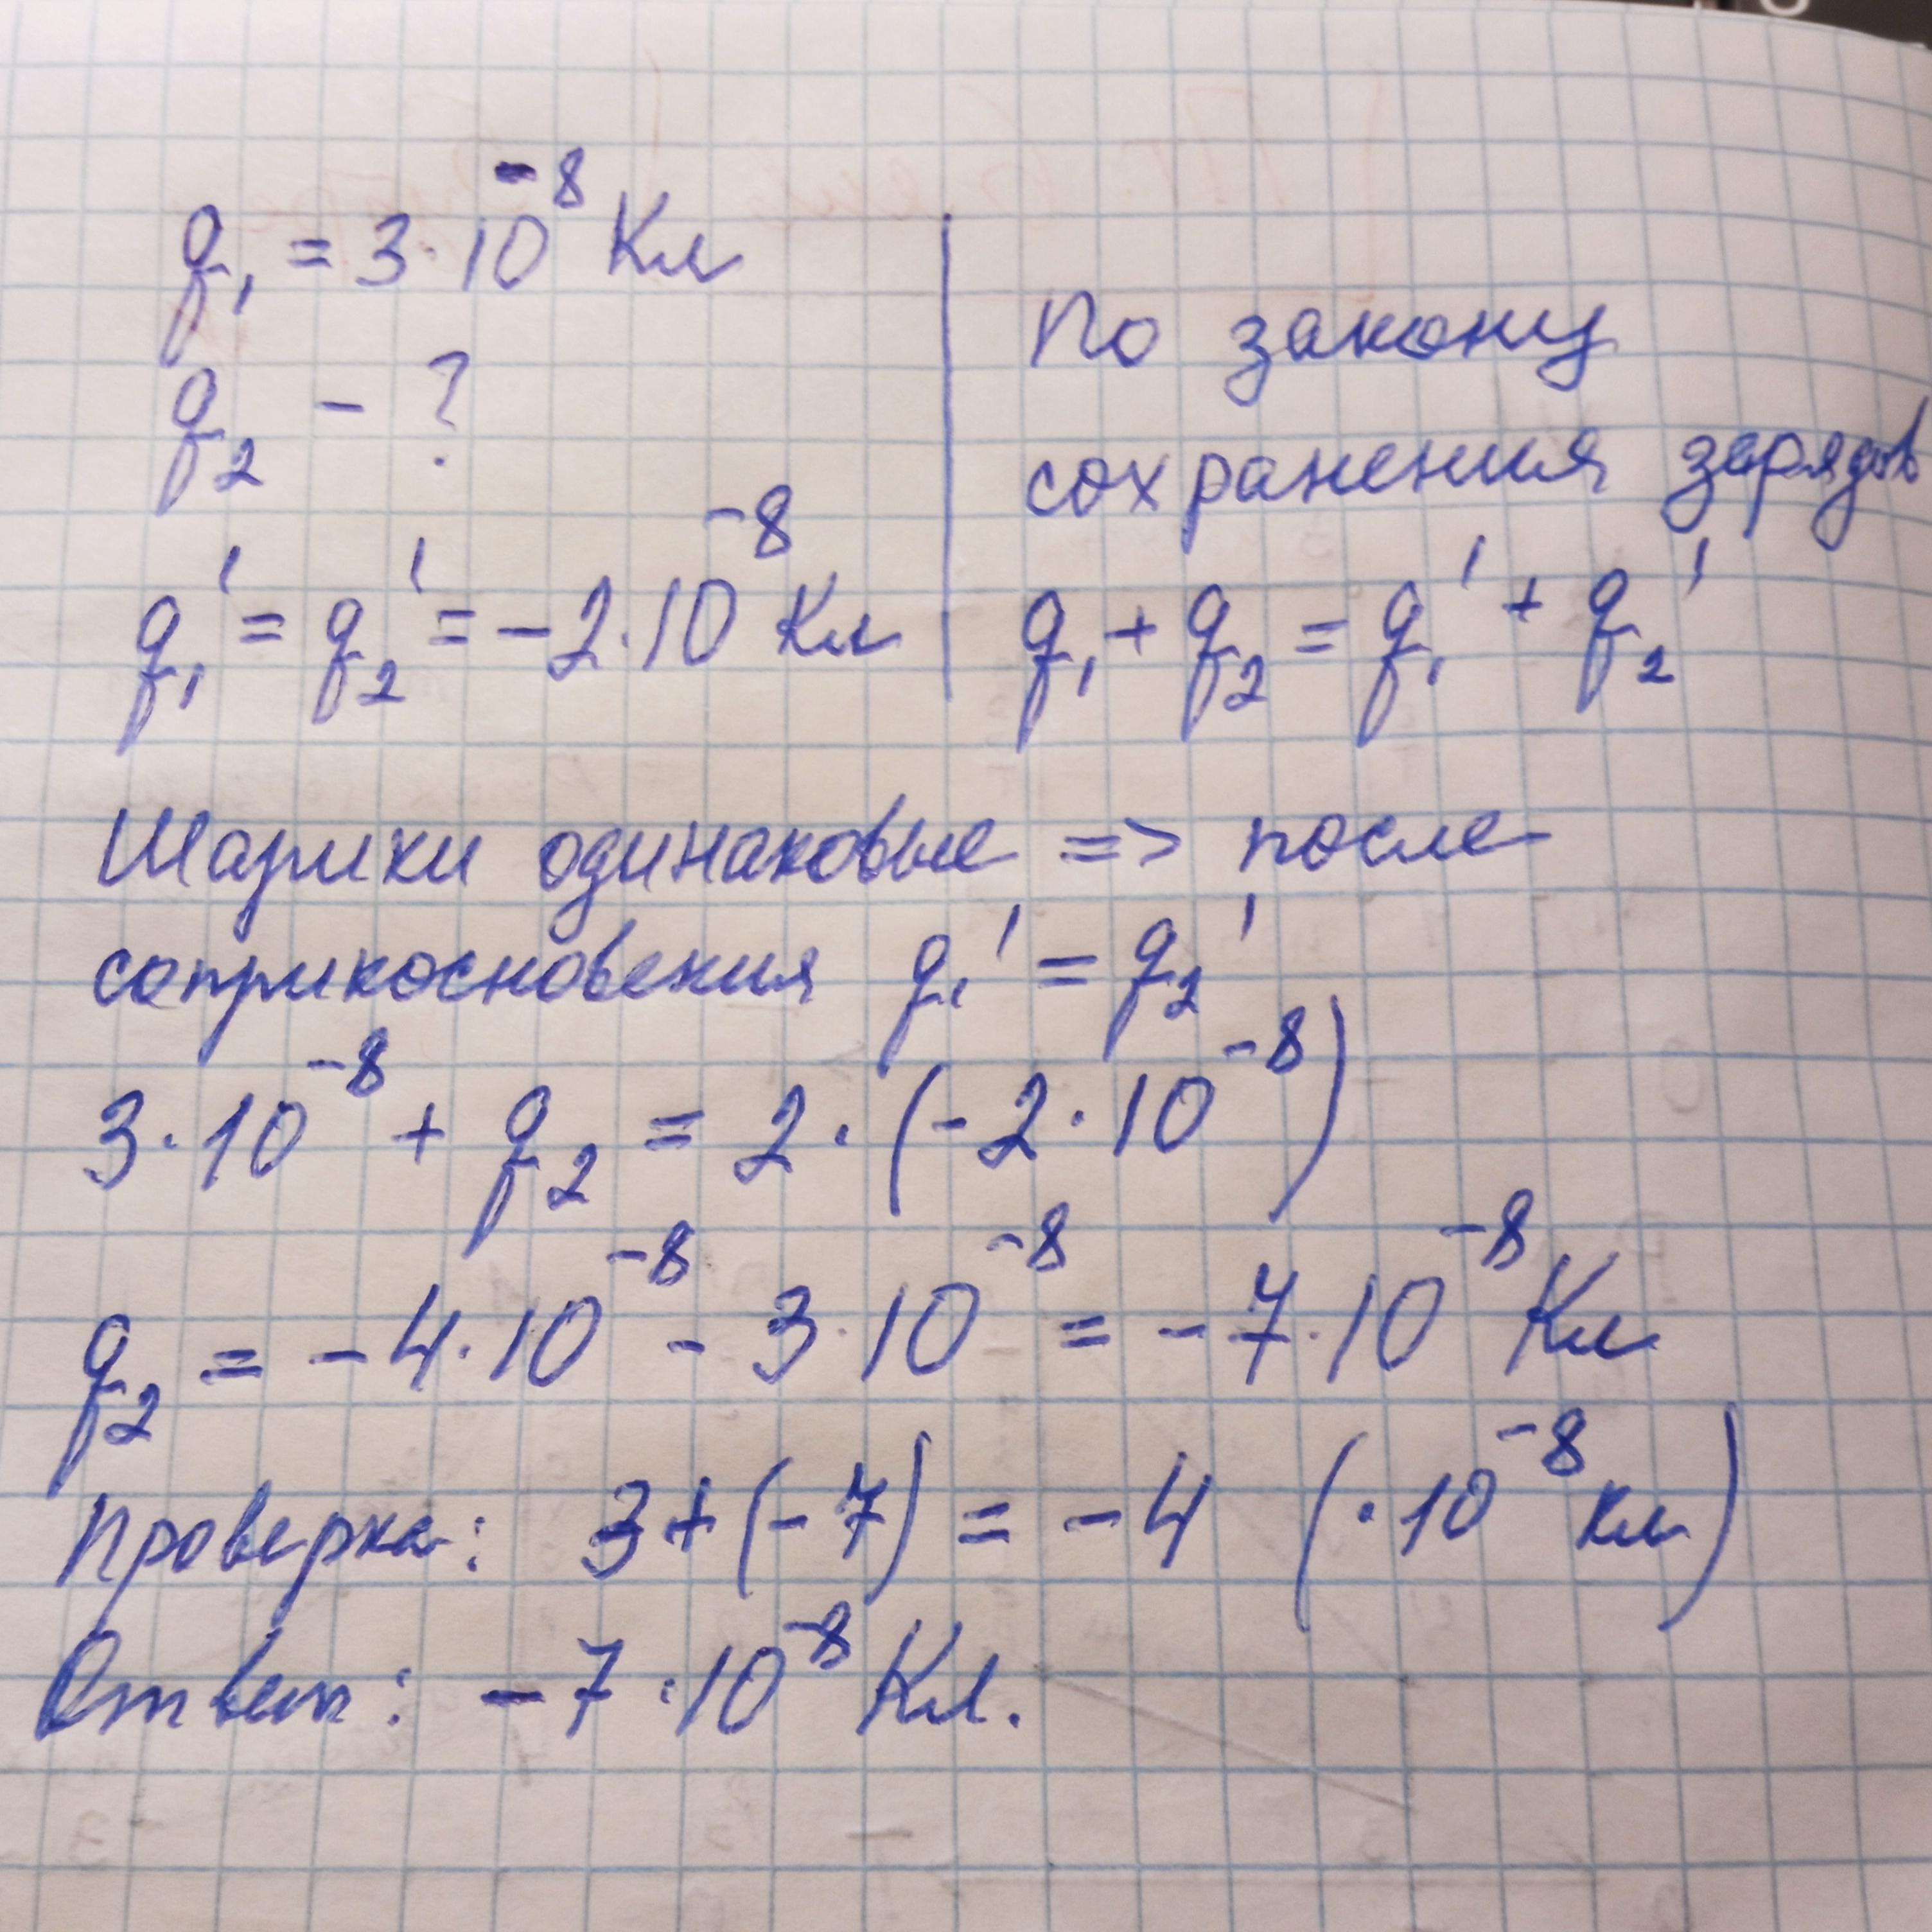 q₁ = 3·10⁻⁸ Кл
q₂ - ?
q₁' = q₂' = -2·10⁻⁸ Кл
По закону
сохранения зарядов
q₁ + q₂ = q₁' + q₂'
Шарики одинаковые => после
соприкосновения q₁' = q₂'
3·10⁻⁸ + q₂ = 2·(-2·10⁻⁸)
q₂ = -4·10⁻⁸ - 3·10⁻⁸ = -7·10⁻⁸ Кл
Проверка: 3+(-7) = -4 (·10⁻⁸ Кл)
Ответ: -7·10⁻⁸ Кл.